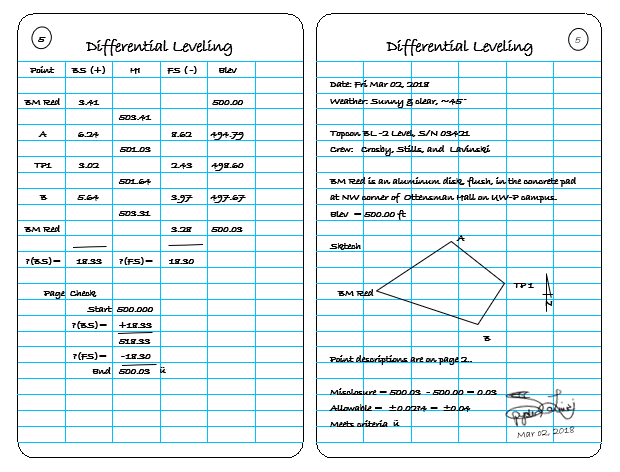 5
Differential Leveling
Point BS (+) HI FS (-) Elev
BM Red 3.41 500.00
503.41
A 6.24 8.62 494.79
501.03
TP1 3.02 2.43 498.60
501.64
B 5.64 3.97 497.67
503.31
BM Red 3.28 500.03
?(BS)= 18.33 ?(FS)= 18.30
Page Check
Start 500.000
?(BS)= +18.33
518.33
?(FS)= -18.30
End 500.03 ü
5
Differential Leveling
Date: Fri Mar 02, 2018
Weather: Sunny & clear, ~45°
Topcon BL-2 Level, S/N 03421
Crew: Crosby, Stills, and Lavinski
BM Red is an aluminum disk, flush, in the concrete pad
at NW corner of Ottensman Hall on UW-P campus.
Elev = 500.00 ft
Sktech
A
BM Red
TP1
N
B
Point descriptions are on page 2.
Misclosure = 500.03 - 500.00 = 0.03
Allowable = ±0.02
Meets criteria ü
Mar 02, 2018